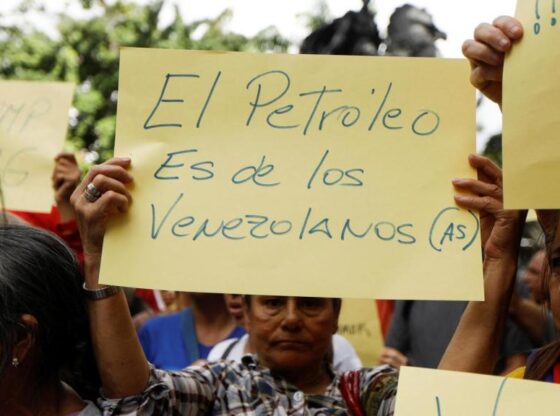 El Petróleo
Es de los
Venezolanos (as)